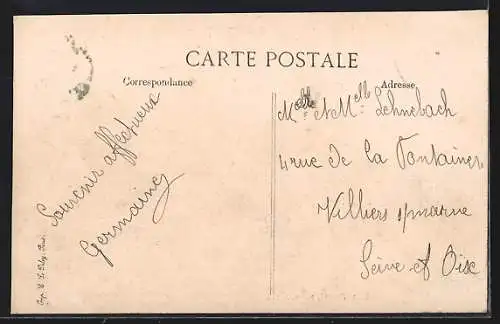 CARTE POSTALE
Correspondance
Adresse
Souvenir affectueux
Germaine
Melle et Melle Lehnebach
4 rue de La Fontaine
Villiers s/marne
Seine et Oise